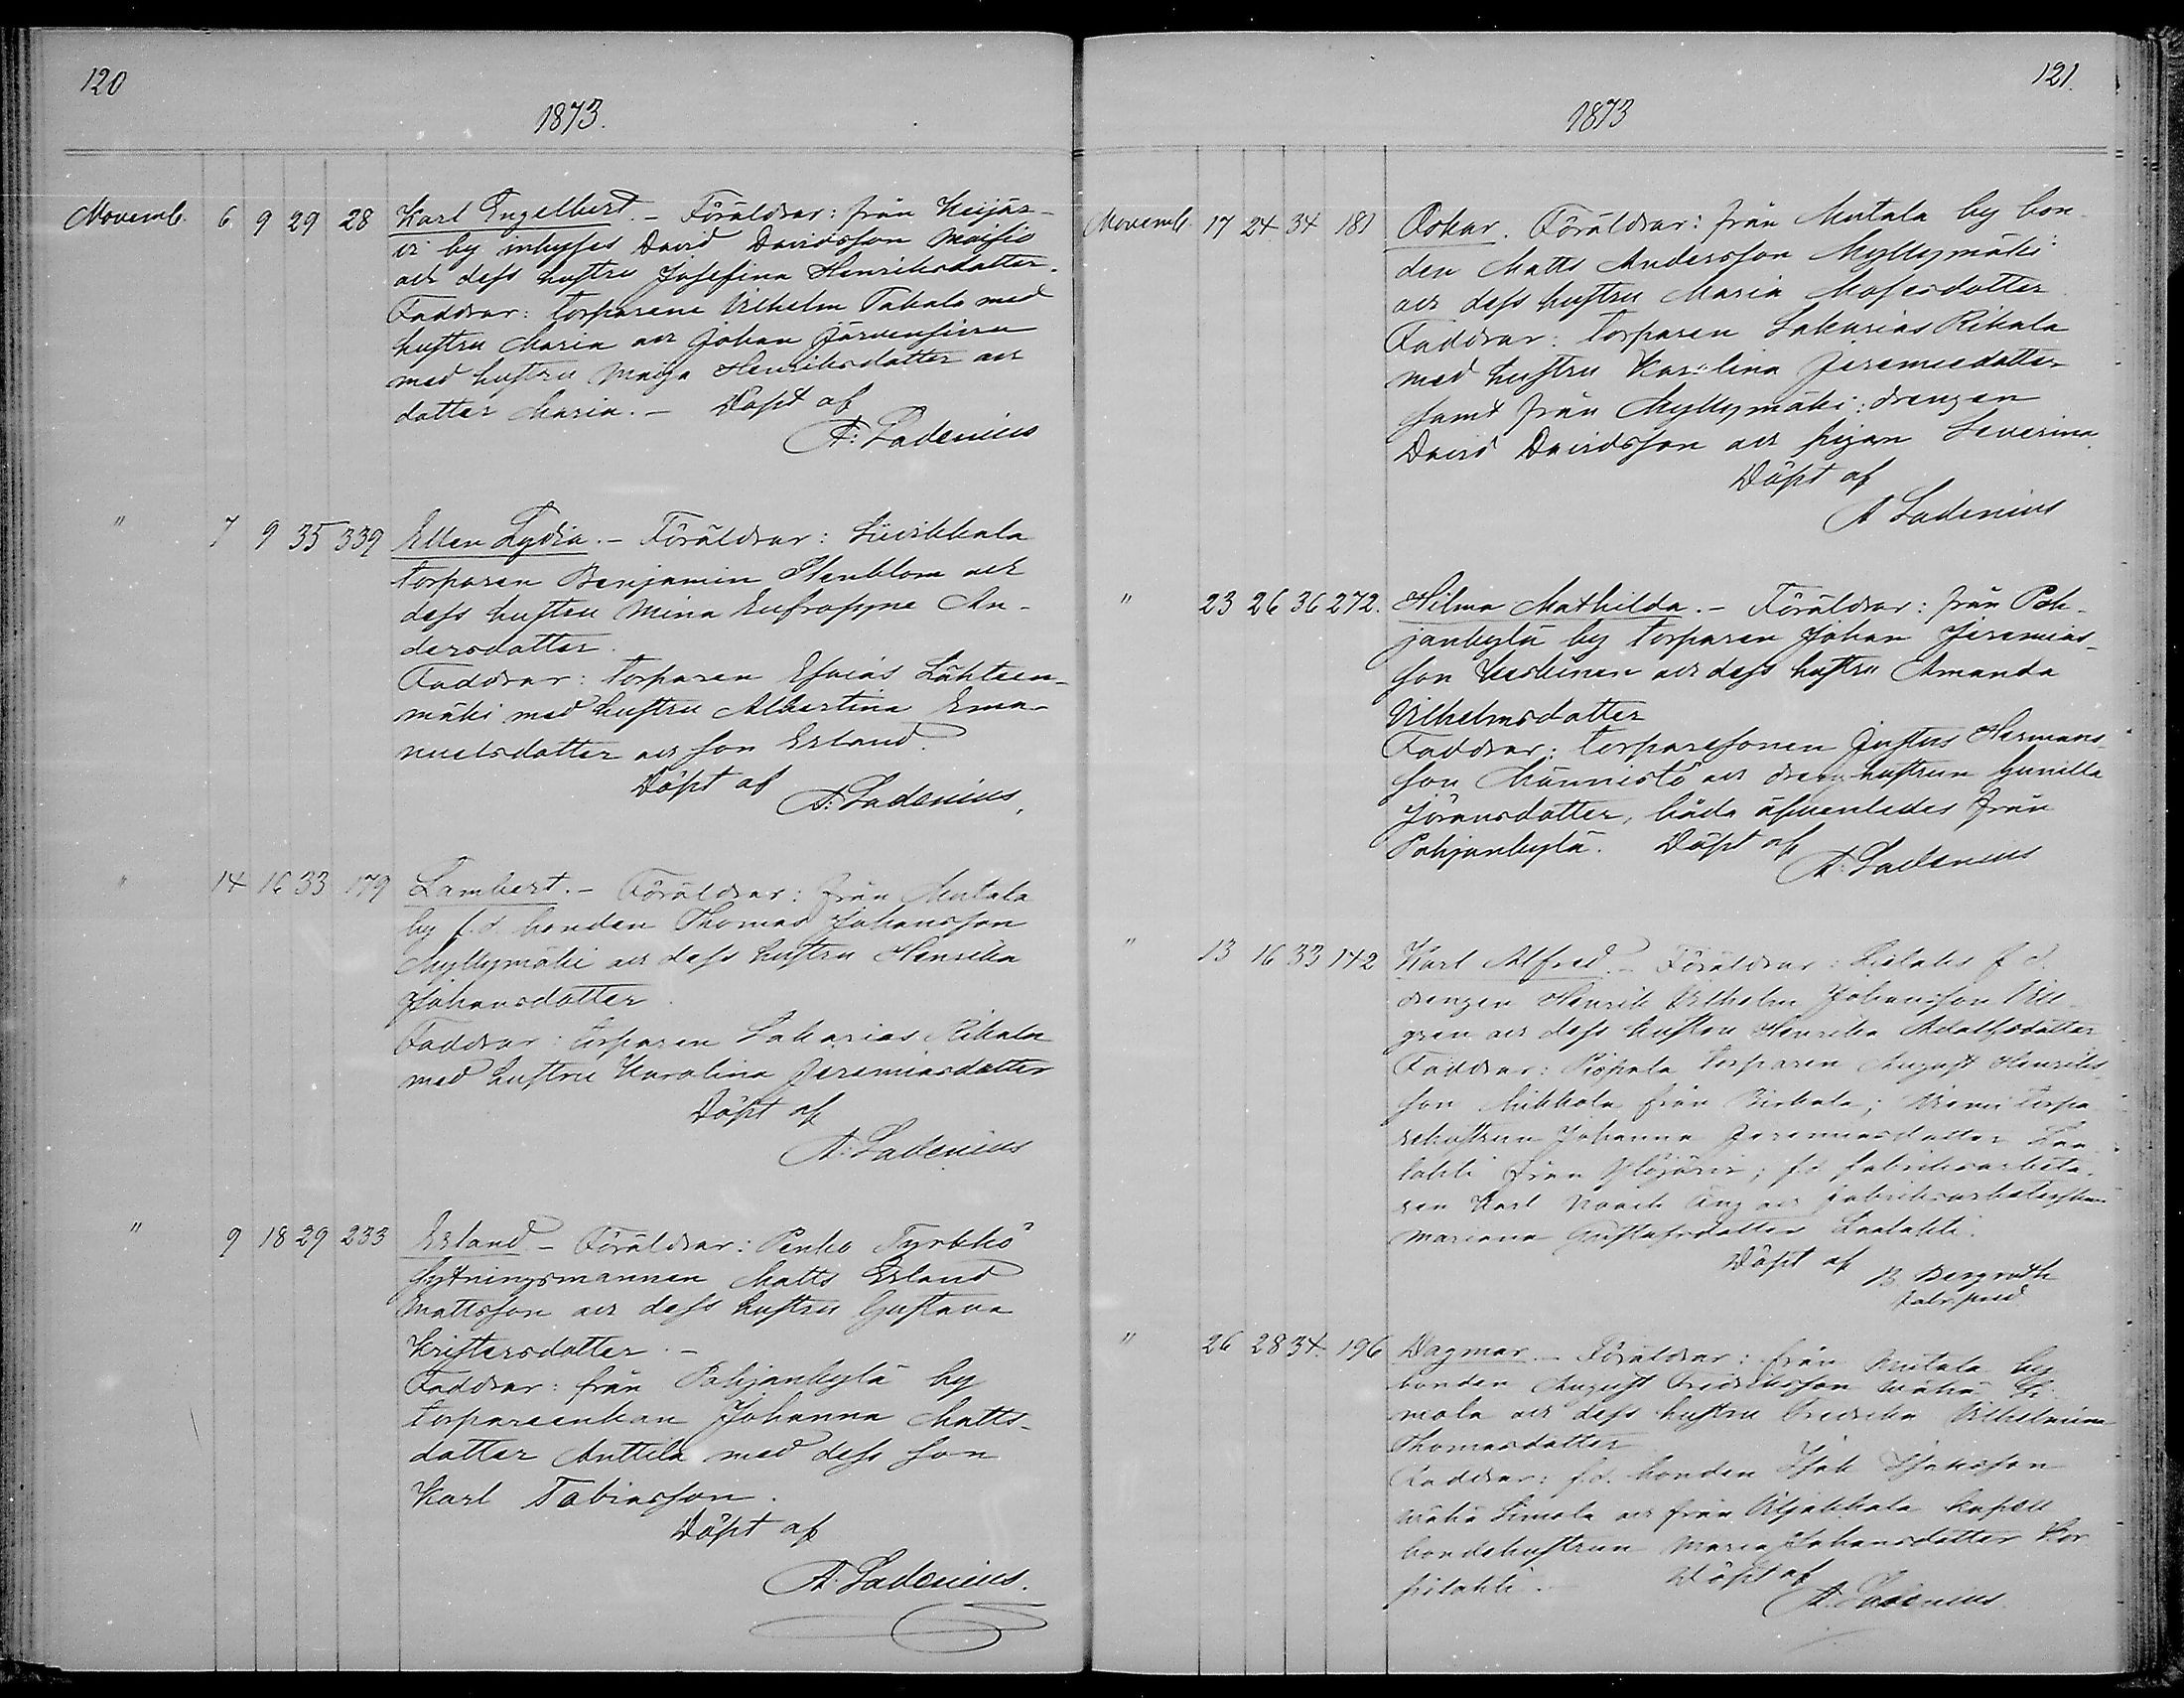 120
1873.
Novemb. 6. 9 29 28 Karl Engelbert. - Föräldrar: från Keijär-
vi by inhyses David Davidsson Maisio
och dess hustru Josefina Henriksdotter.
Faddrar: torparene Vilhelm Takala med
hustru Maria och Johan Järvensivu
med hustru Maija Henriksdotter och
dotter Maria. - Döpt af
A: Ladenius
" 7 9 35 339 Ellen Lydia. - Föräldrar: Siivikkala
torparen Benjamin Stenblom och
dess hustru Mina Eufrosyne An-
dersdotter.
Faddrar: torparen Esaias Lähteen-
mäki med hustru Albertina Ema-
nuelsdotter och son Erland.
Döpt af A: Ladenius.
" 14 16 33 179 Lambert. - Föräldrar: från Mutala
by f.d. bonden Thomas Johansson
Myllymäki och dess hustru Henrika
Johansdotter.
Faddrar: torparen Sakarias Rikala
med hustru Karolina Jeremiasdotter
Döpt af
A: Ladenius
" 9 18 29 233 Erland - Föräldrar: Penho Tyrkkö
sytningsmannen Matts Erland
Mattsson och dess hustru Gustava
Kristersdotter. -
Faddrar: från Pohjankylä by
torpareenkan Johanna Matts-
dotter Anttila med dess son
Karl Tobiasson.
Döpt af
A. Ladenius.
121.
1873
Novemb. 17 24 34 181 Oskar. Föräldrar: från Mutala by bon-
den Matts Andersson Myllymäki
och dess hustru Maria Mosesdotter
Faddrar: torparen Sakarias Rikala
med hustru Karolina Jeremiedotter
samt från Myllymäki: drengen
David Davidsson och pigan Severina.
Döpt af
A Ladenius
" 23 26 36 272. Hilma Mathilda. - Föräldrar: från Poh-
jankylä by torparen Johan Jeremias-
son Keskinen och dess hustru Amanda
Vilhelmsdotter
Faddrar: torparesonen Justus Hermans-
son Männistö och dreng hustrun Gunilla
Jöransdotter, båda äfvenledes från
Pohjankylä. Döpt af
A: Ladenius
" 13 16 33 142 Karl Alfred. - Föräldrar: f d.
drengen Henrik Vilhelm Johansson
gren och dess hustru Henrika Adolfsdotter
Faddrar: torparen August Henriks-
son Mikkola från Birkala; torpa-
rehustrun Johanna Jeremiasdotter Laa-
lahti från Ylöjärvi; fd fabriksarbeta-
ren Karl Noach Äng och fabriksarbetarehustrun
Mariana Gustafsdotter Laalahti.
Döpt af B. Bergroth
Fabr. pred.
" 26 28 34. 196 Dagmar. - Föräldrar: från Mutala by
bonden August Fredriksson Wähä Si-
mola och dess hustru Fredrika Vilhelmina
Thomasdotter
Faddrar: f.d. bonden Isak Isaksson
Wähä Simola och från Viljakkala kapell
bondehustrun Maria Johansdotter Kor-
pilahti. - Döpt af
A. Ladenius.